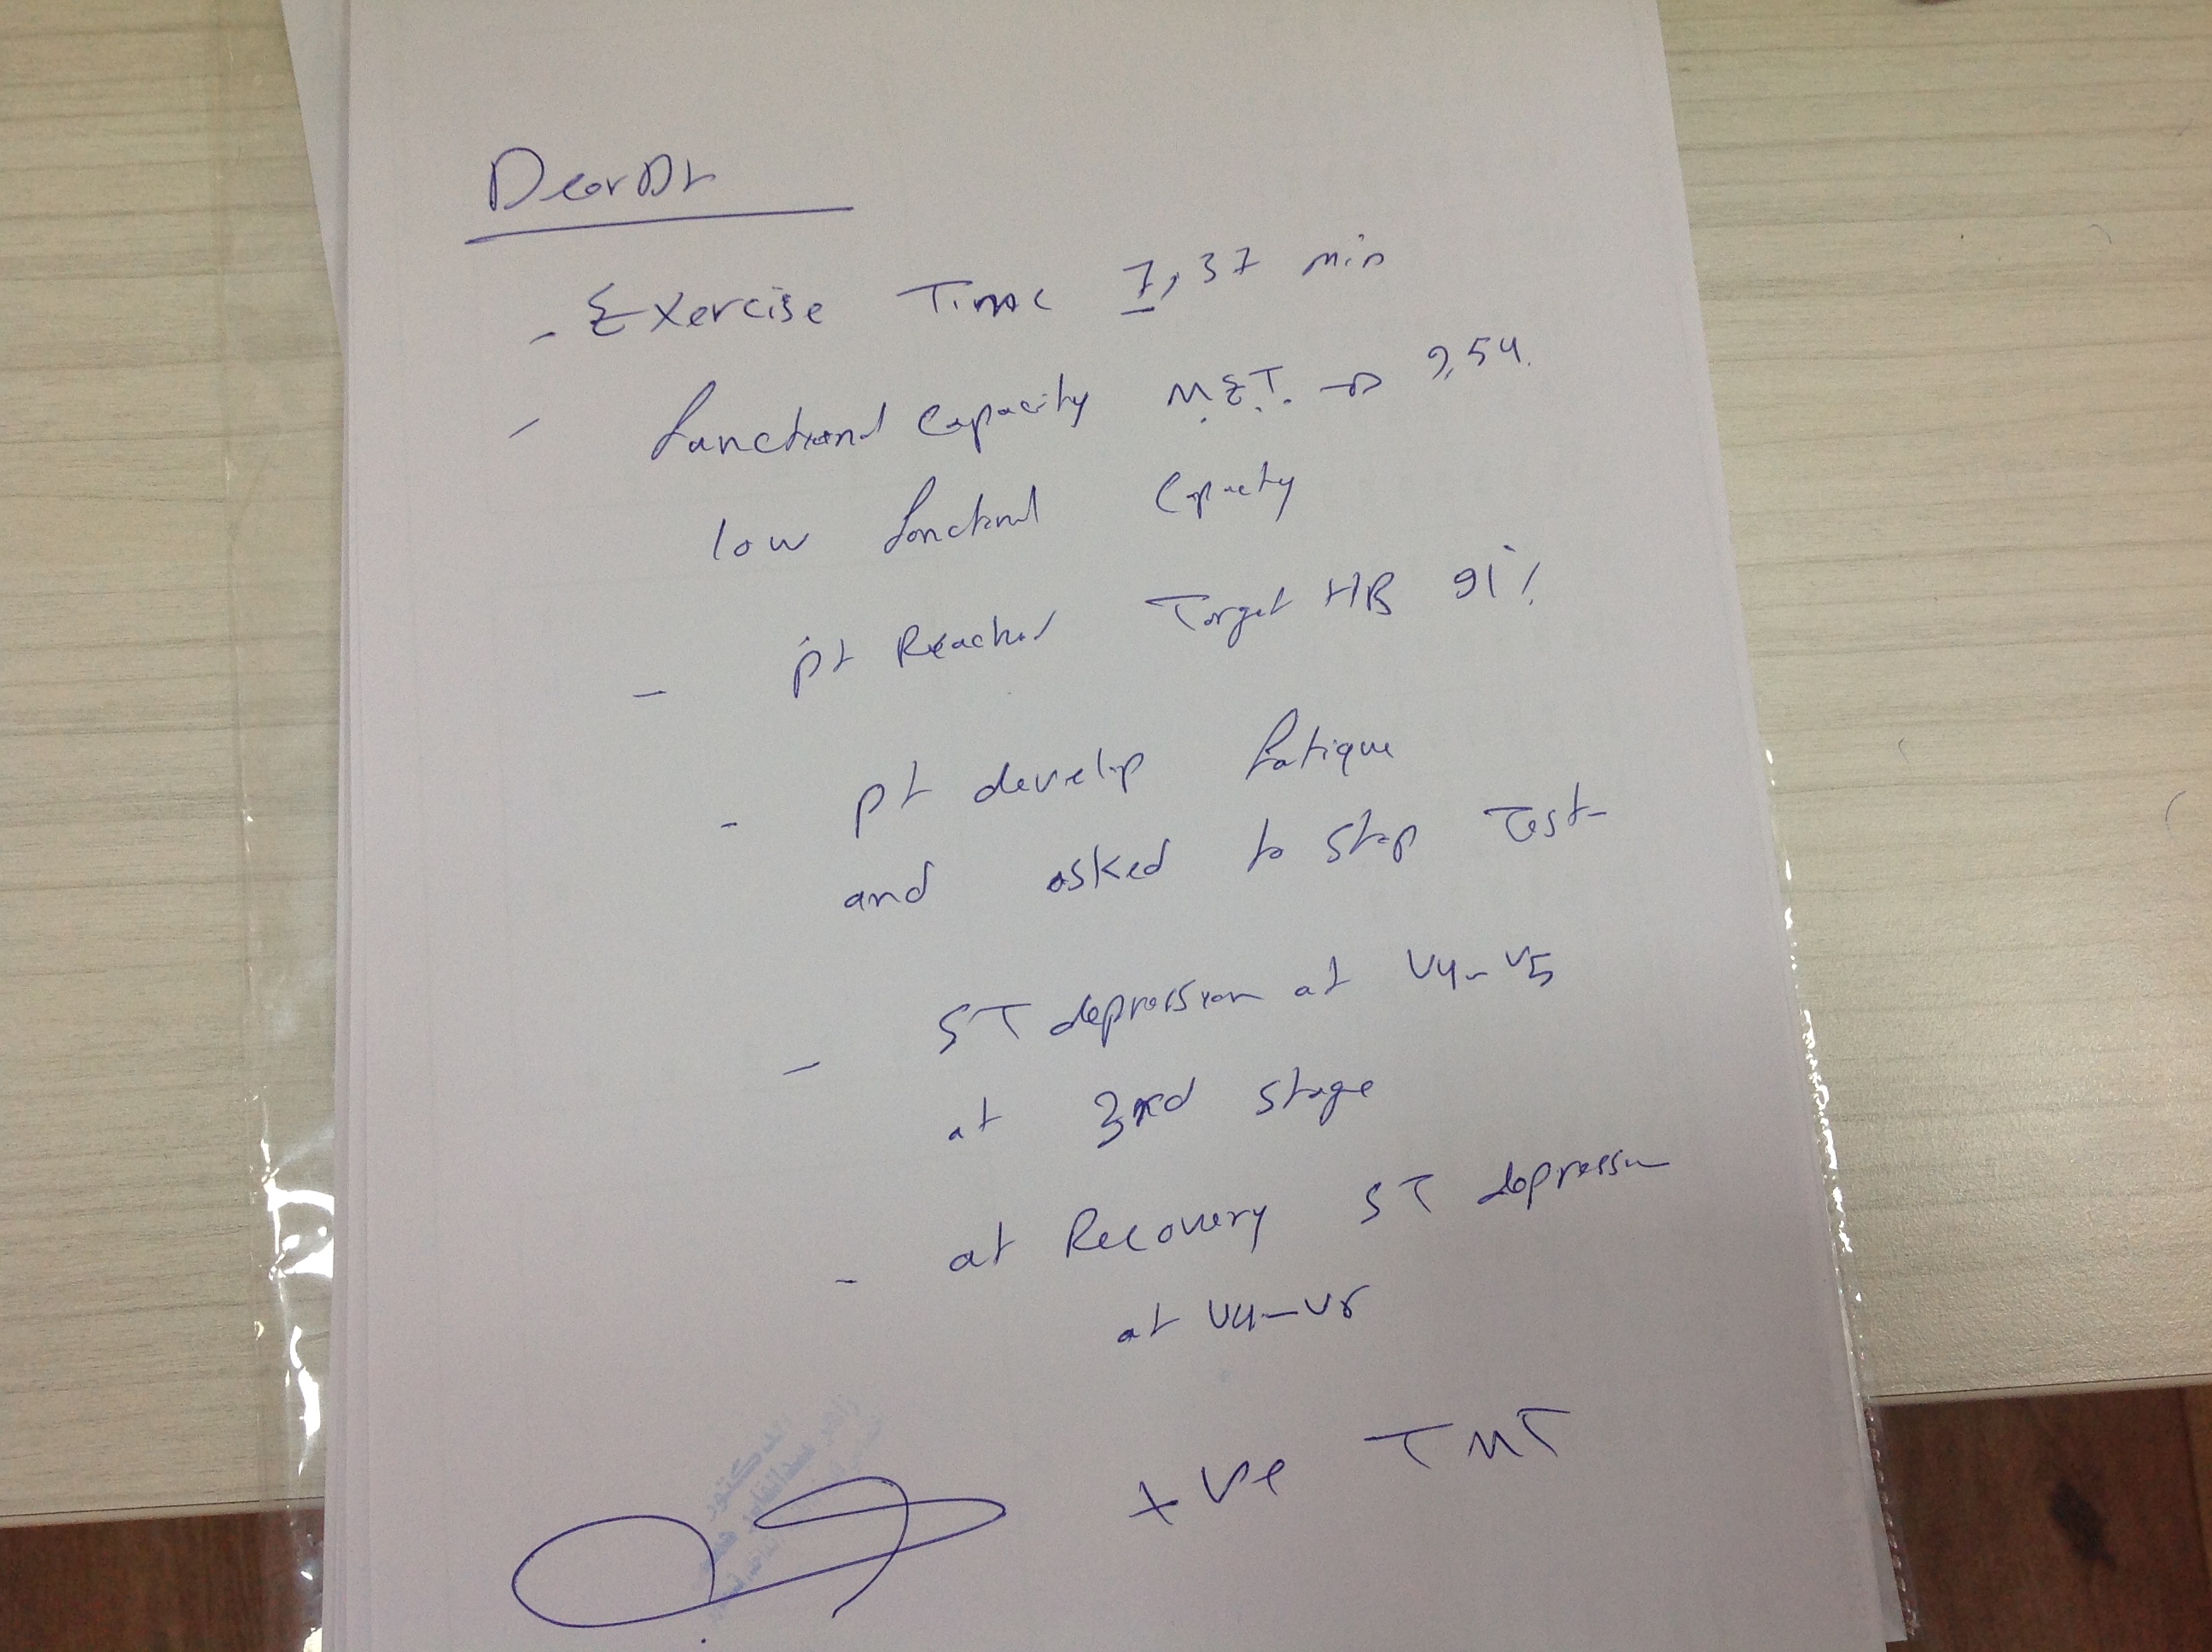 Dear Dr
- Exercise Time 7,37 min
- functional capacity M.E.T. → 9,54.
low functional capacity
- pt Reached Target HB 91%
- pt develop fatigue
and asked to stop Test
- ST depression at V4-V5
at 3rd stage
- at Recovery ST depression
at V4-V6
+ve TMT
الدكتور